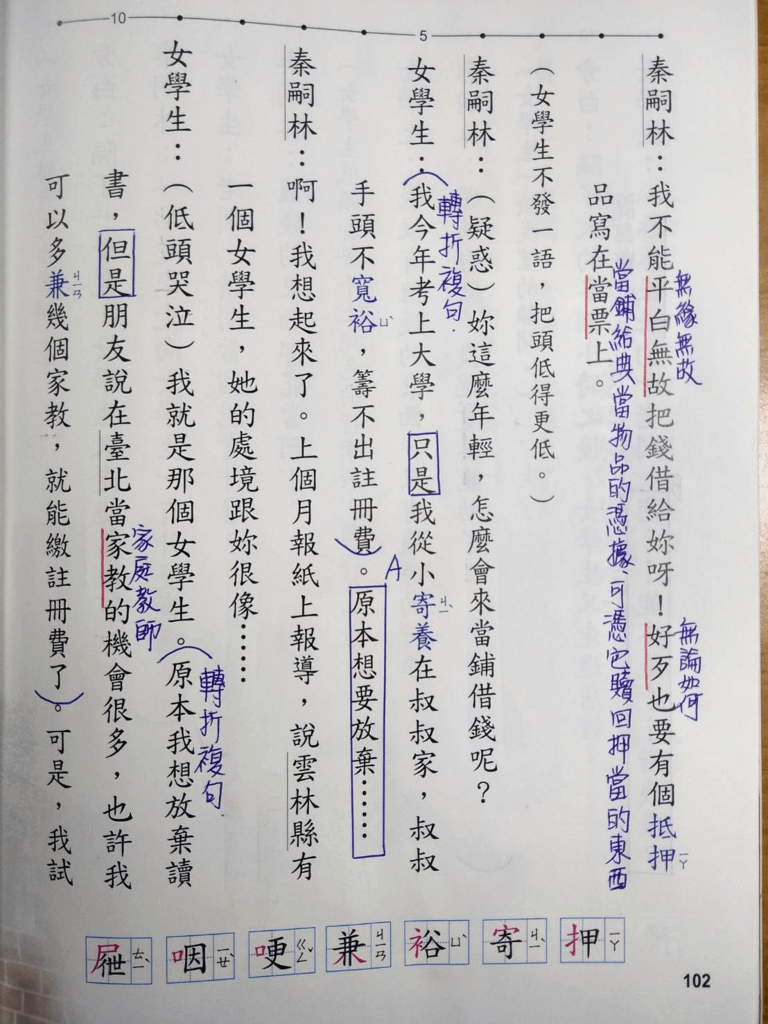 秦嗣林：我不能平白無故把錢借給妳呀！好歹也要有個抵押
無緣無故
無論如何
ㄧㄚ
品寫在當票上。
當鋪給典當物品的憑據、可憑它贖回押當的東西
（女學生不發一語，把頭低得更低。）
5
秦嗣林：（疑惑）妳這麼年輕，怎麼會來當鋪借錢呢？
女學生：（我今年考上大學，只是我從小寄養在叔叔家，叔叔
轉折複句.
ㄐㄧˋ
手頭不寬裕，籌不出註冊費）。原本想要放棄……
ㄩˋ
A
秦嗣林：啊！我想起來了。上個月報紙上報導，說雲林縣有
一個女學生，她的處境跟妳很像……
10
女學生：（低頭哭泣）我就是那個女學生。（原本我想放棄讀
轉折複句.
書，但是朋友說在臺北當家教的機會很多，也許我
家庭教師
可以多兼幾個家教，就能繳註冊費了）。可是，我試
ㄐㄧㄢ
押 ㄧㄚ
寄 ㄐㄧˋ
裕 ㄩˋ
兼 ㄐㄧㄢ
哽 ㄍㄥˇ
咽 ㄧㄝˋ
屜 ㄊㄧˋ
102